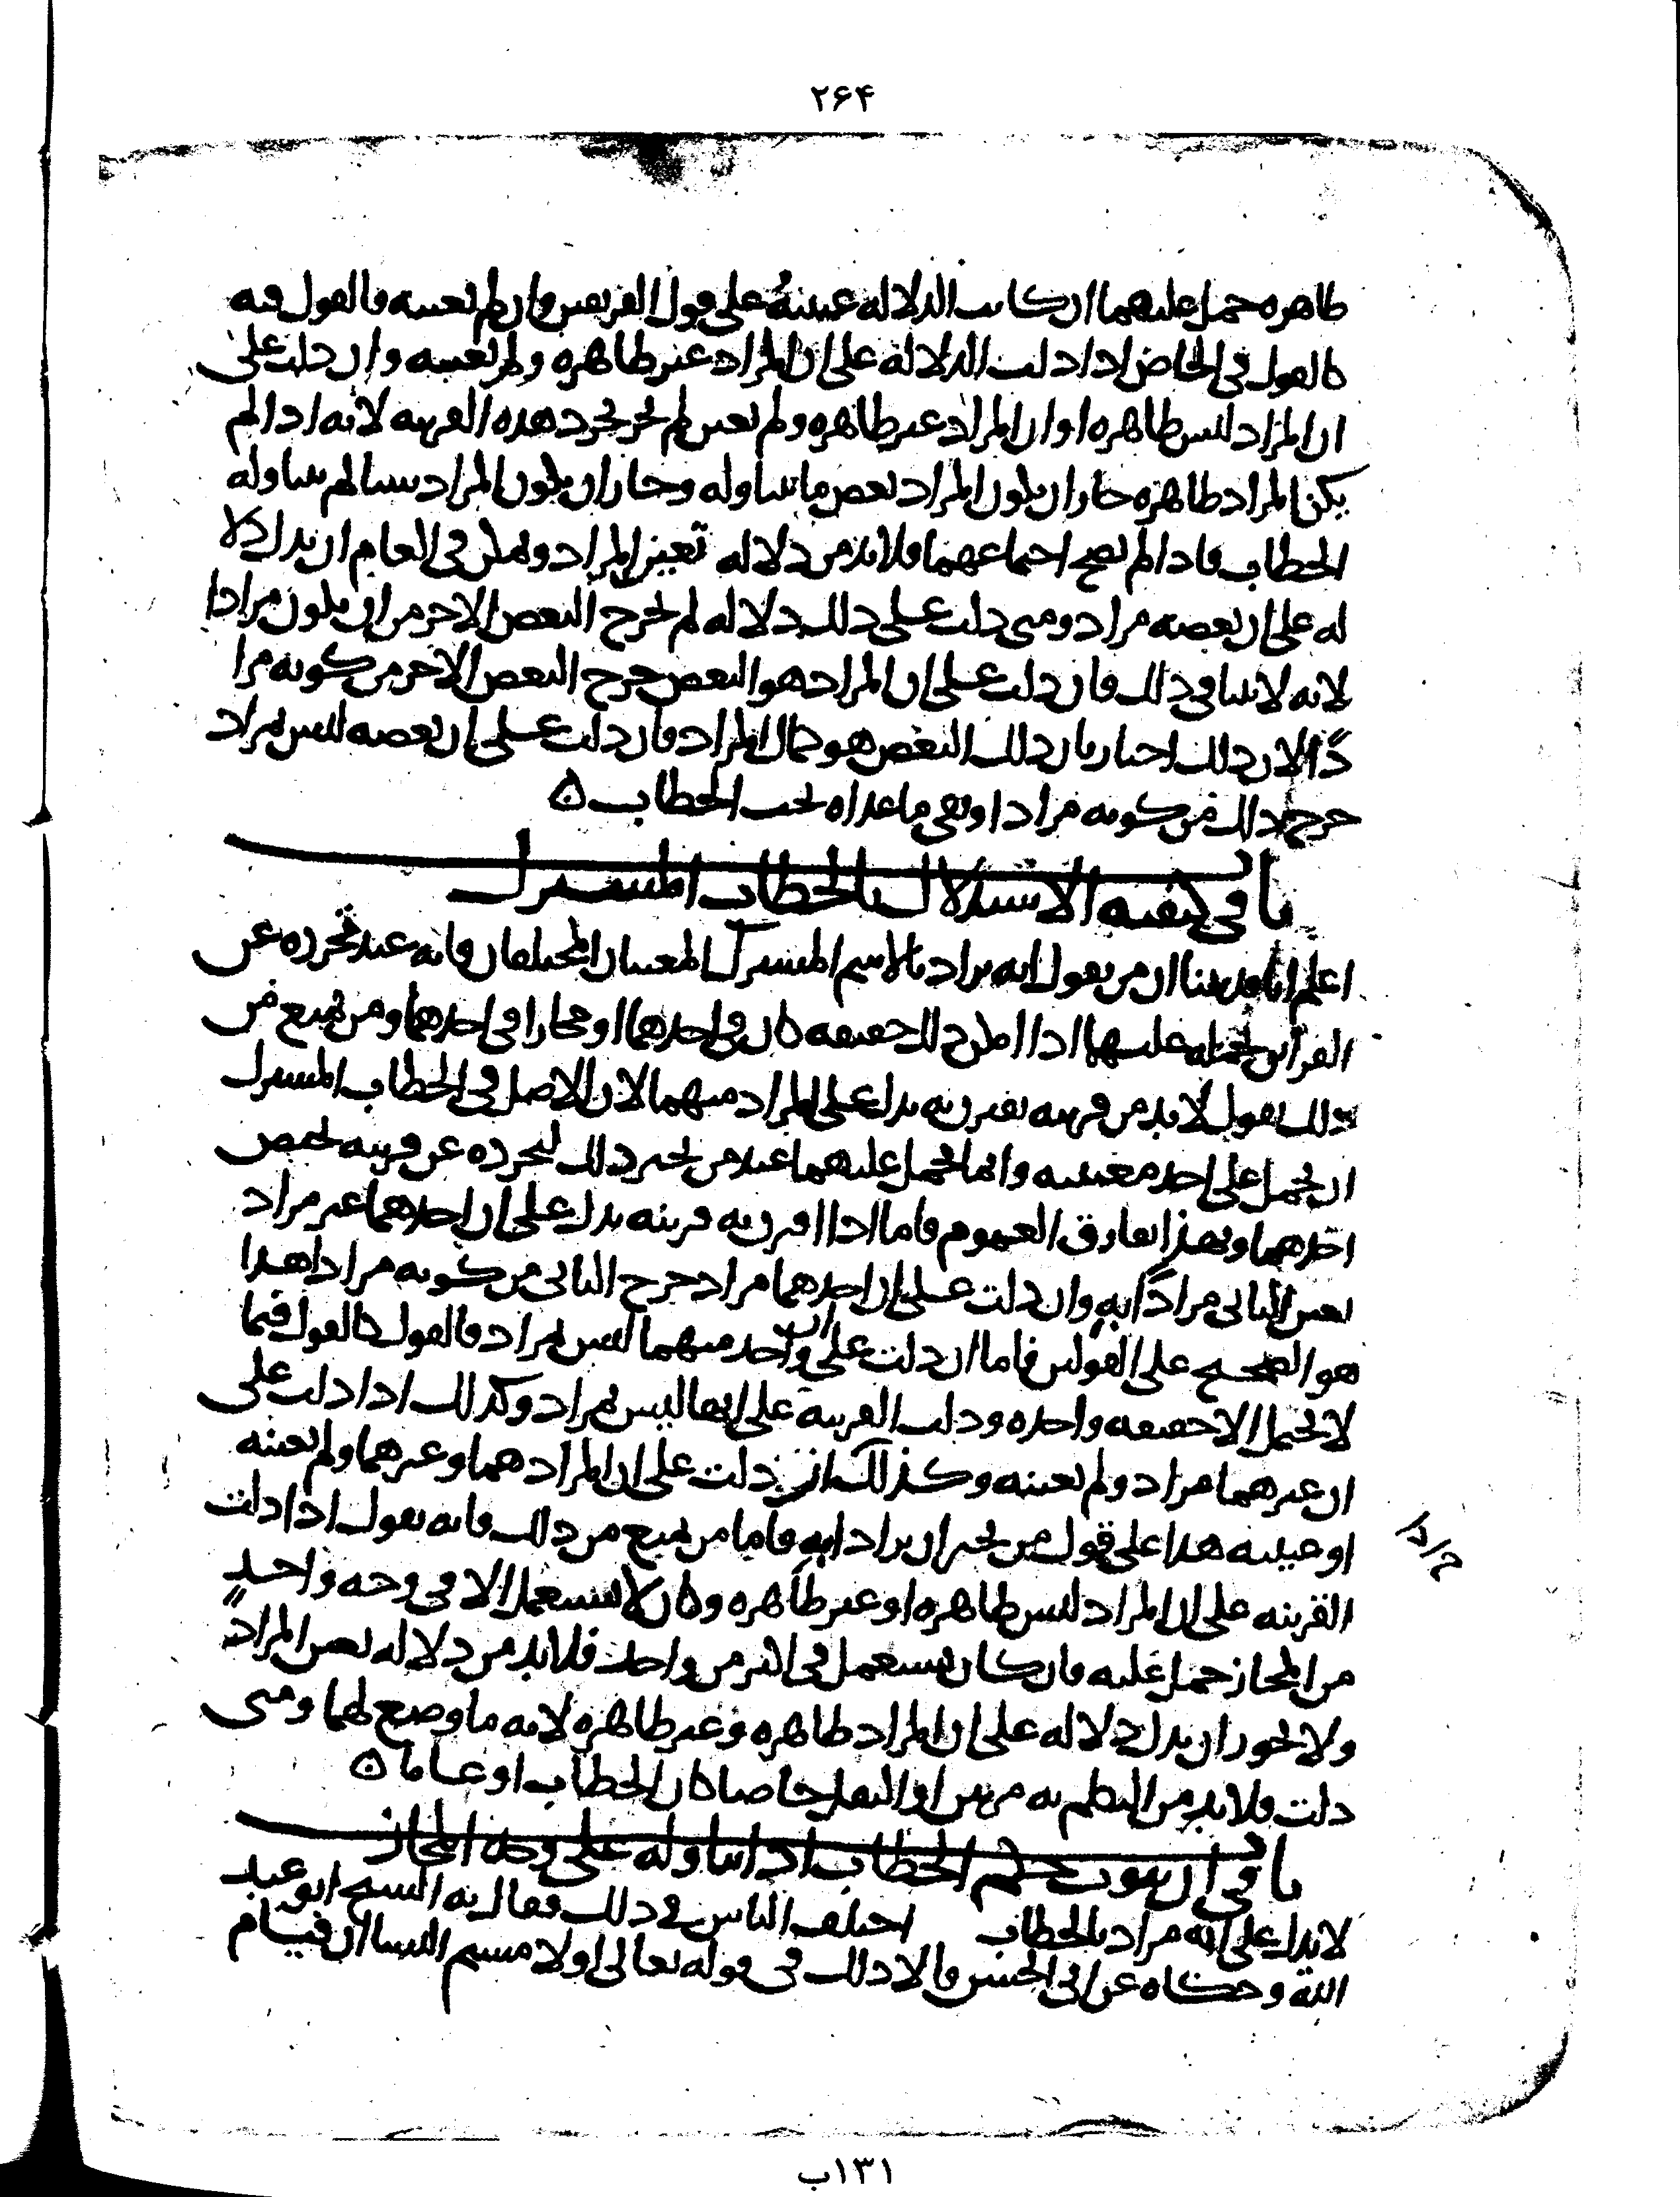 ۲۶۴
ظاهره حمل عليهما ان كانت الدلالة عينته على قول الفريقين وان لم تعينه فالقول فيه
كالقول في الخاص اذا دلت الدلالة على ان المراد غير ظاهره ولم تعينه وان دلت على
ان المراد ليس ظاهره او ان المراد غير ظاهره ولم تعين لم تخرج بمجرد هذه القرينه لانه اذا لم
يكن المراد ظاهره جاز ان يكون المراد بعض ما تناوله وجاز ان يكون المراد شيئا لم يتناوله
الخطاب فاذا لم يصح اجتماعهما فلا بد من دلالة تعين المراد ويمكن في العام ان يدل دلا
له على ان بعضه مراد ومتى دلت على ذلك دلاله لم تخرج البعض الاخر من ان يكون مرادا
لانه لا يتنافى ذلك فان دلت على ان المراد هو البعض خرج البعض الاخر من كونه مرا
دًا لان ذلك اخبار بان ذلك البعض هو كمال المراد فان دلت على ان بعضه ليس بمراد
خرج ذلك من كونه مرادا وبقي ما عداه تحت الخطاب ۞
باب في كيفيه الاستدلال بالخطاب المشترك
اعلم انا قد بينا ان من يقول انه يراد بالاسم المشترك المعنيان المختلفان فانه عند تجرده عن
القرائن يحمله عليهما اذا اطلق ذلك حقيقه كان في احدهما او مجازا في احدهما ومن يمنع من
ذلك يقول لا بد من قرينه تقترن به تدل على المراد منهما لان الاصل في الخطاب المشترك
ان يحمل على احد معنييه وانما يحمل عليهما عند من يجيز ذلك لتجرده عن قرينه تخص
احدهما وبهذا يفارق العموم فاما اذا اقترن به قرينه تدل على ان احدهما غير مراد
تعين الثاني مرادًا به وان دلت على ان احدهما مراد خرج الثاني من كونه مرادا هذا
هو الصحيح على القولين فاما ان دلت على ان واحد منهما ليس بمراد فالقول كالقول فيما
لا يحتمل الا حقيقه واحده ودلت القرينه على انها ليس بمراد وكذلك اذا دلت على
ان غيرهما مراد ولم تعينه وكذلك ان دلت على ان المراد هما وغيرهما ولم تعينه
او عينته هذا على قول من يجيز ان يراد به فاما من يمنع من ذلك فانه يقول اذا دلت
القرينه على ان المراد ليس ظاهره او غير ظاهره وكان لا يستعمل الا في وجه واحدٍ
من المجاز حمل عليه فان كان يستعمل في اكثر من واحد فلا بد من دلاله تعين المراد
ولا يجوز ان يدل دلاله على ان المراد ظاهره وغير ظاهره لانه ما وضع لهما ومتى
دلت فلا بد من التكلم به مرتين او النقل خاصا كان الخطاب او عاما ۞
باب في ان ثبوت حكم الخطاب اذا تناوله على وجه المجاز
لا يدل على انه مراد بالخطاب اختلف الناس في ذلك فقال به الشيخ ابو عبد
الله وحكاه عن ابي الحسن قالا ذلك في قوله تعالى او لامستم النسا ان قيام
۱۳۱ب